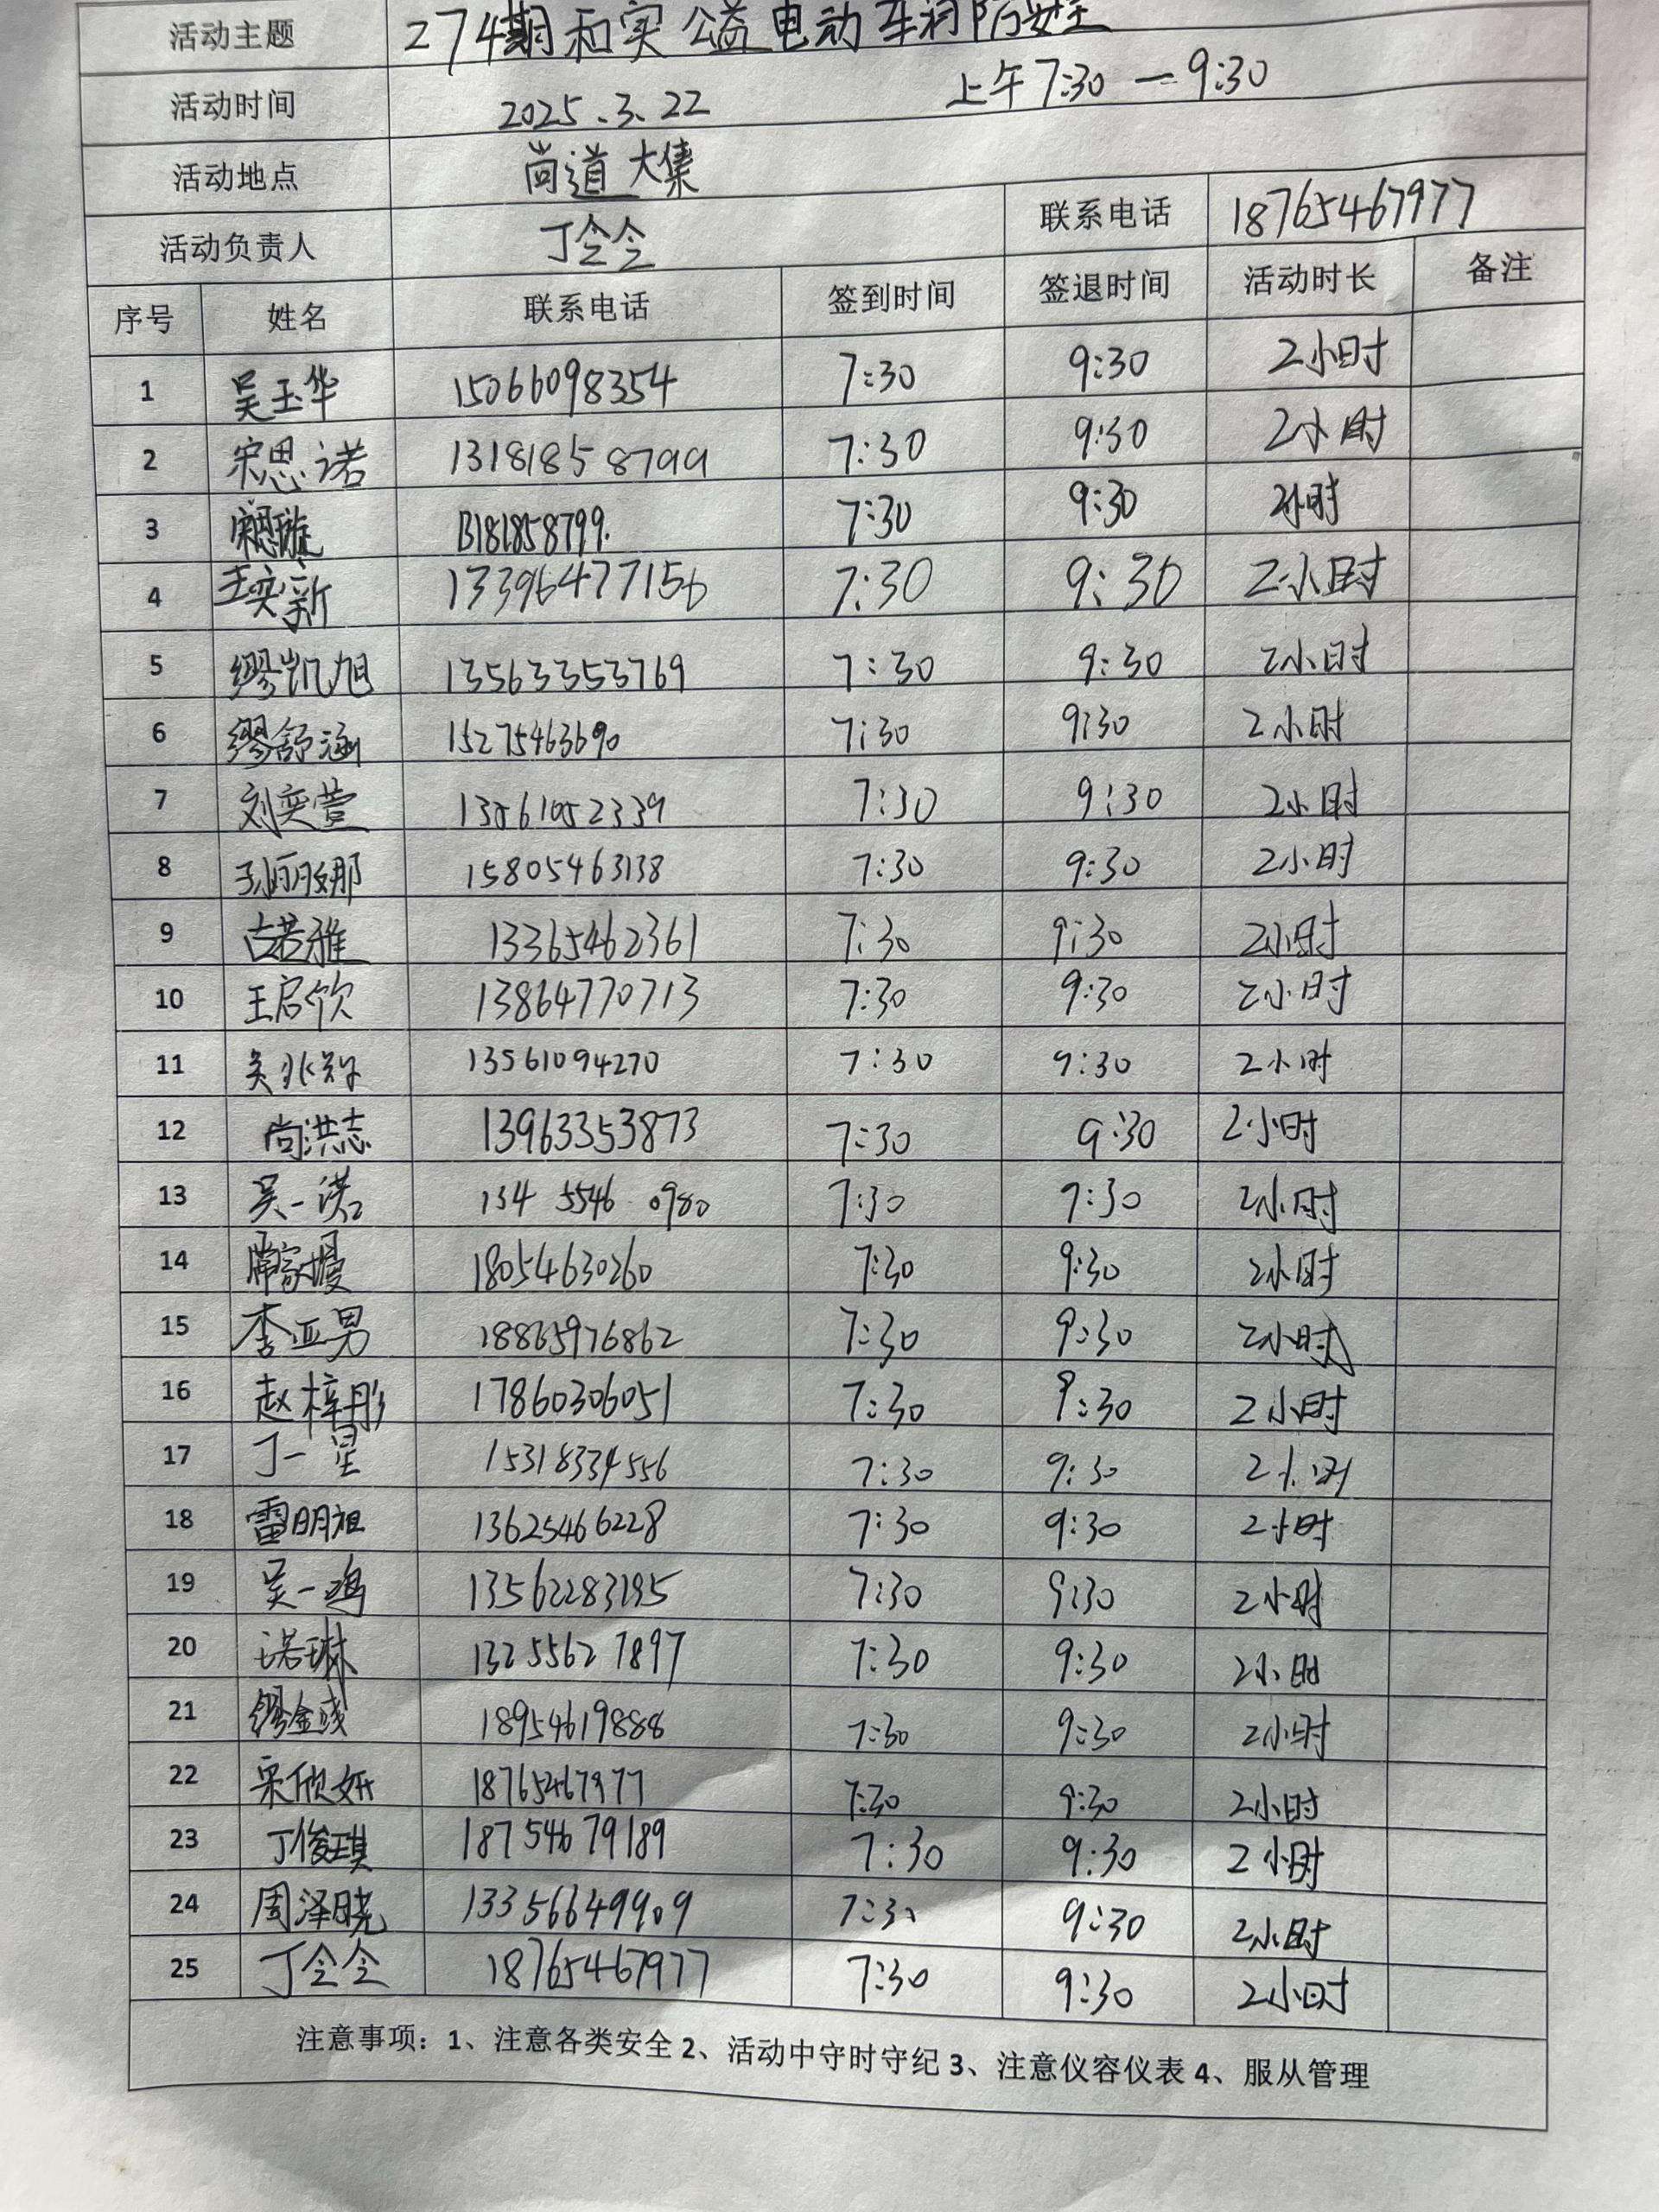 活动主题 274期和实公益电动车消防安全
活动时间 2025.3.22 上午7:30一9:30
活动地点 尚道大集
活动负责人 丁仝仝 联系电话 18765467977
序号 姓名 联系电话 签到时间 签退时间 活动时长 备注
1 吴玉华 15066098354 7:30 9:30 2小时
2 宋思诺 13181858799 7:30 9:30 2小时
3 宋思璇 13181858799. 7:30 9:30 2小时
4 王奕新 13396477156 7:30 9:30 2小时
5 缪凯旭 13563353769 7:30 9:30 2小时
6 缪舒涵 15275463690 7:30 9:30 2小时
7 刘奕萱 13561052339 7:30 9:30 2小时
8 孙丽娜 15805463138 7:30 9:30 2小时
9 古若雅 13365462361 7:30 9:30 2小时
10 王启钦 13864770713 7:30 9:30 2小时
11 吴兆 13561094270 7:30 9:30 2小时
12 尚洪志 13963353873 7:30 9:30 2小时
13 吴一诺 134 5546 0980 7:30 9:30 2小时
14 18054630260 7:30 9:30 2小时
15 李亚男 18865976862 7:30 9:30 2小时
16 赵梓彤 17860306051 7:30 9:30 2小时
17 丁一星 15318334556 7:30 9:30 2小时
18 雷明祖 13625466228 7:30 9:30 2小时
19 吴一鸿 13562283195 7:30 9:30 2小时
20 诺琳 13255627897 7:30 9:30 2小时
21 缪金 18954619888 7:30 9:30 2小时
22 宋欣妍 18765467977 7:30 9:30 2小时
23 丁俊琪 18754679189 7:30 9:30 2小时
24 周泽晓 13356649909 7:30 9:30 2小时
25 丁仝仝 18765467977 7:30 9:30 2小时
注意事项：1、注意各类安全 2、活动中守时守纪 3、注意仪容仪表 4、服从管理